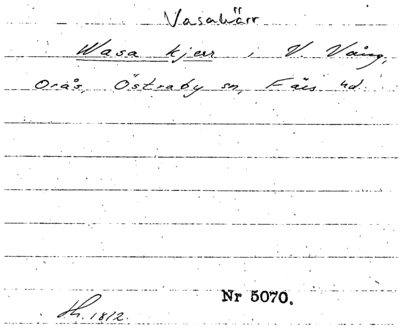 Vasakärr
Wasa kjerr, V. Vång,
Orås, Östraby sn, Färs hd.
Nr 5070.
Sk. 1812.